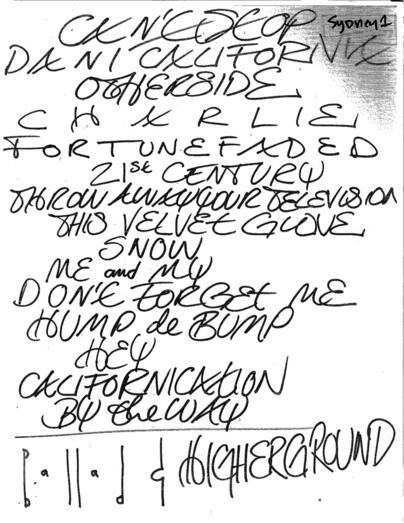 Sydney 1
CAN'T STOP
DANI CALIFORNIA
OTHERSIDE
CHARLIE
FORTUNE FADED
21ST CENTURY
THROW AWAY YOUR TELEVISION
THIS VELVET GLOVE
SNOW
ME and MY
DON'T FORGET ME
HUMP de BUMP
HEY
CALIFORNICATION
BY the WAY
HIGHERGROUND